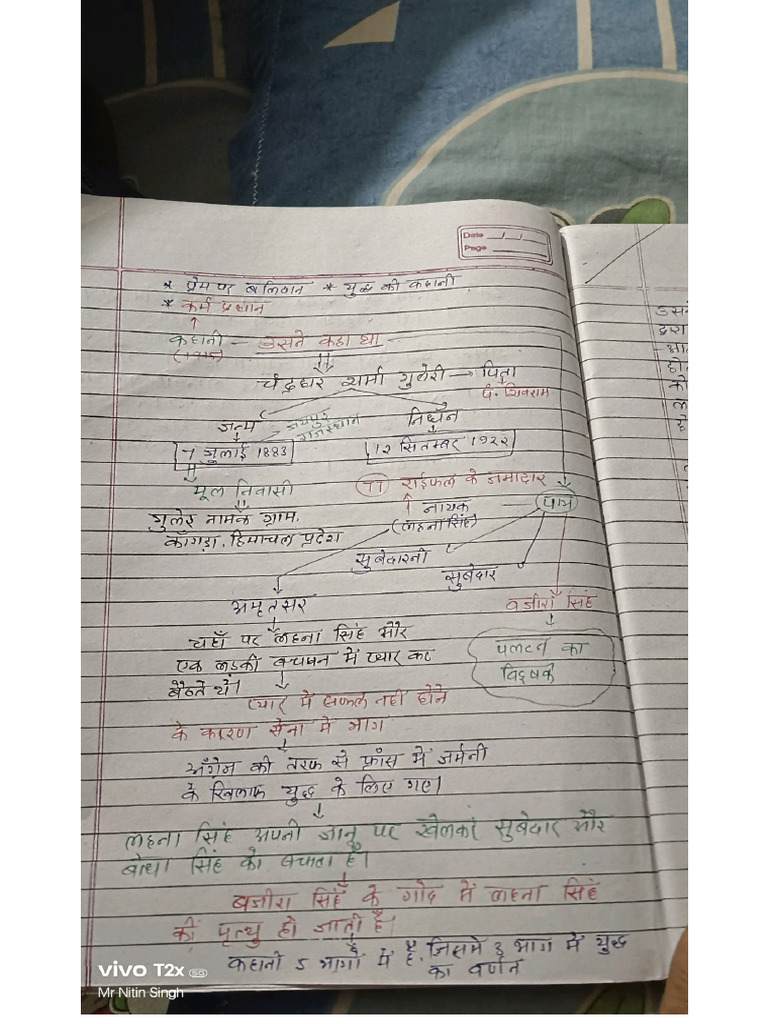 Date __/__/__
Page ______
* प्रेम पर बलिदान * युद्ध की कहानी
* कर्म प्रधान
कहानी - उसने कहा था
(1915)
चंद्रधर शर्मा गुलेरी → पिता
पं. शिवराम
जन्म
जयपुर
राजस्थान
निधन
7 जुलाई 1883
12 सितम्बर 1922
मूल निवासी
77 राईफल के जमादार
गुलेर नामक ग्राम,
नायक
(लहना सिंह)
पात्र
काँगड़ा, हिमाचल प्रदेश
सुबेदारनी
सुबेदार
अमृतसर
वजीरा सिंह
यहाँ पर लहना सिंह और
एक लड़की बचपन में प्यार कर
बैठते थे।
पलटन का
विदूषक
प्यार में सफल नहीं होने
के कारण सेना में भाग
अँग्रेज की तरफ से फ्राँस में जर्मनी
के खिलाफ युद्ध के लिए गए।
लहना सिंह अपनी जान पर खेलकर सुबेदार और
बोधा सिंह को बचाता है।
वजीरा सिंह के गोद में लहना सिंह
की मृत्यु हो जाती है।
कहानी 5 भागों में है, जिसमे 3 भाग में युद्ध
का वर्णन
उसने
द्वारा
हो
को
ल
है
vivo T2x 5G
Mr Nitin Singh